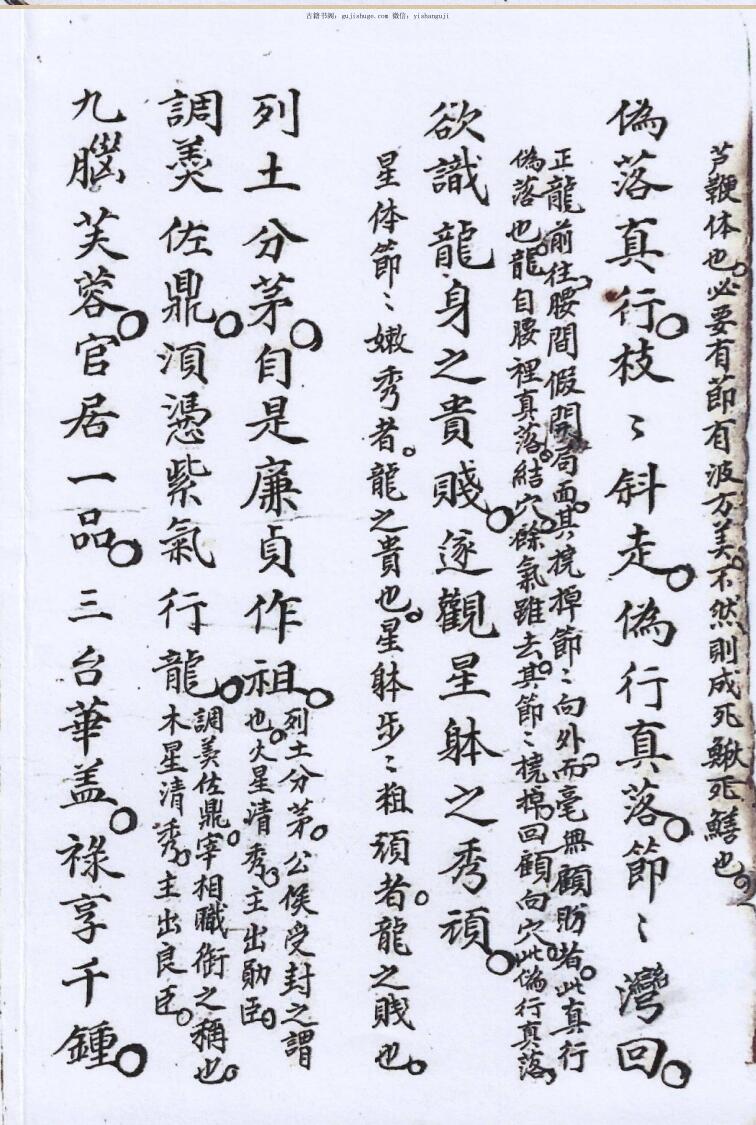 古籍书阁：gujishuge.com 微信：yishanguji
芦鞭体也。必要有節有波方美。不然則成死鰍死鱔也。
偽落真行。枝〻斜走。偽行真落。節〻灣回。
正龍前往。腰間假開局面。其桡掉節〻向外。而毫無顧盼者。此真行
偽落也。龍自腰裡真落。結穴。餘氣雖去。其節〻桡棹。回顧向穴。此偽行真落。
欲識龍身之貴賤。逐觀星躰之秀頑。
星体節〻嫩秀者。龍之貴也。星躰步〻粗頑者。龍之賎也。
列土分茅。自是廉貞作祖。
列土分茅。公侯受封之謂
也。火星清秀。主出勛臣。
調羮佐鼎。須憑紫氣行龍。
調羮佐鼎。宰相職銜之稱也。
木星清秀。主出良臣。
九腦芙蓉。官居一品。三台華盖。祿享千鍾。